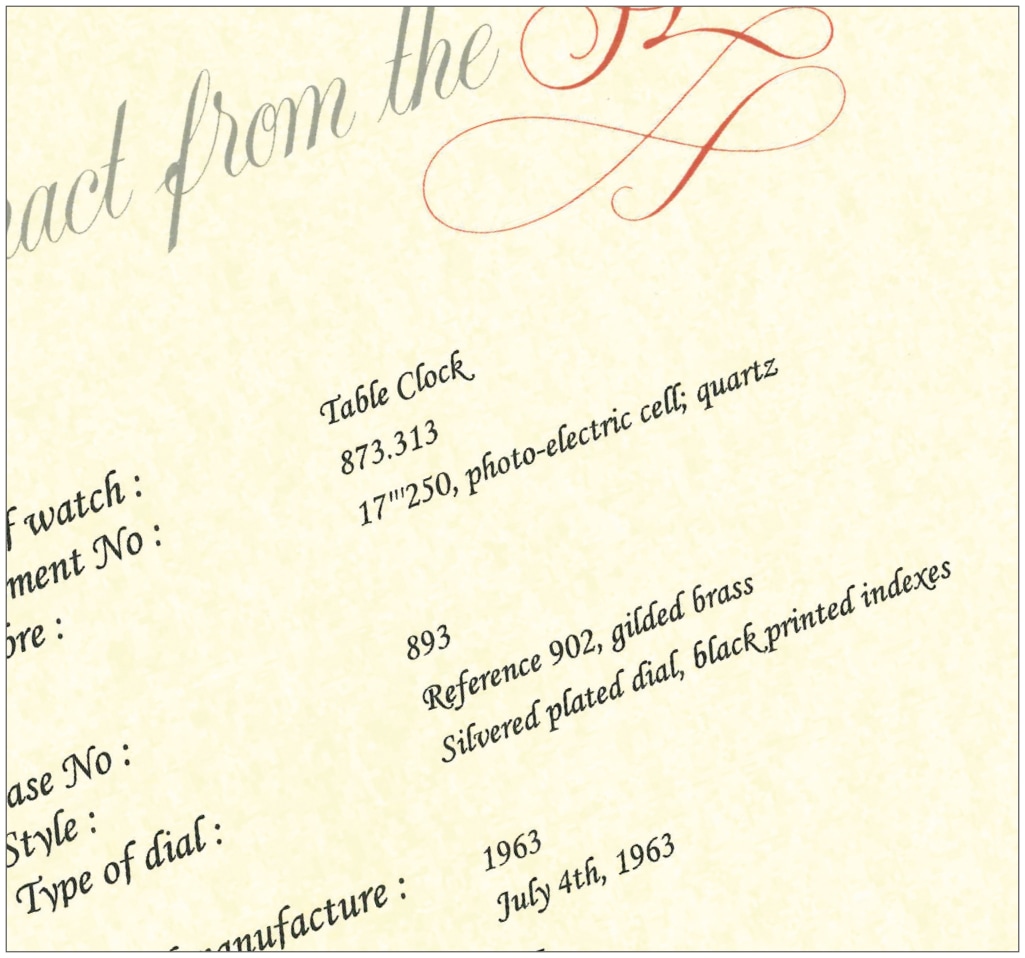 from the
Table Clock
873.313
17'''250, photo-electric cell; quartz
watch :
No :
893
Reference 902, gilded brass
Silvered plated dial, black printed indexes
No :
Style :
Type of dial :
1963
July 4th, 1963